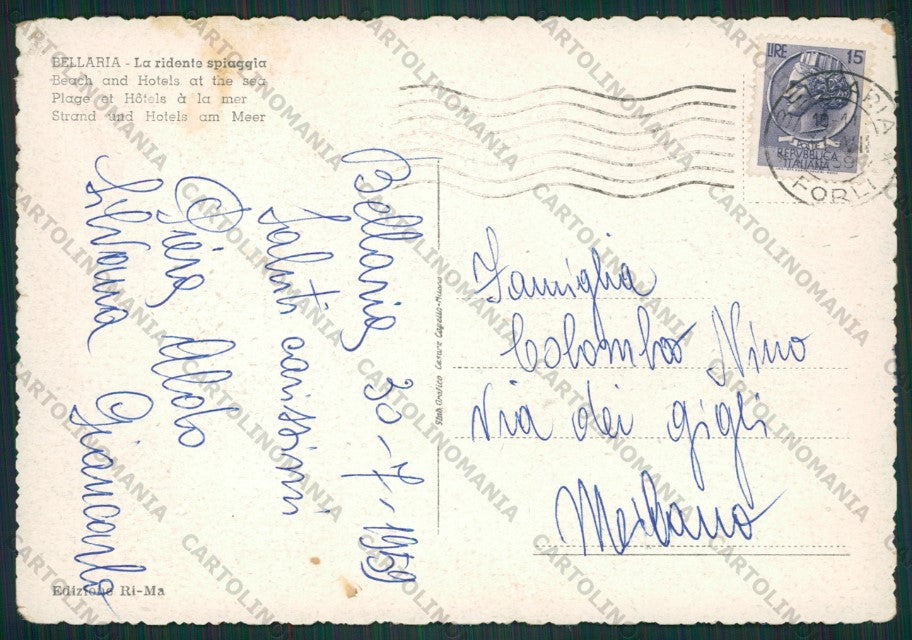 BELLARIA - La ridente spiaggia
Beach and Hotels at the sea
Plage et Hôtels à la mer
Strand und Hotels am Meer
LIRE 15
POSTE
REPVBBLICA
ITALIANA
BELLARIA
FORLI
Bellaria 30-7-1959
Saluti carissimi
Piera Aldo
Silvana Giancarlo
Stab. Grafico Cesare Capello-Milano
Famiglia
Colombo Nino
Via dei gigli
Milano
Edizione Ri-Ma
CARTOLINOMANIA